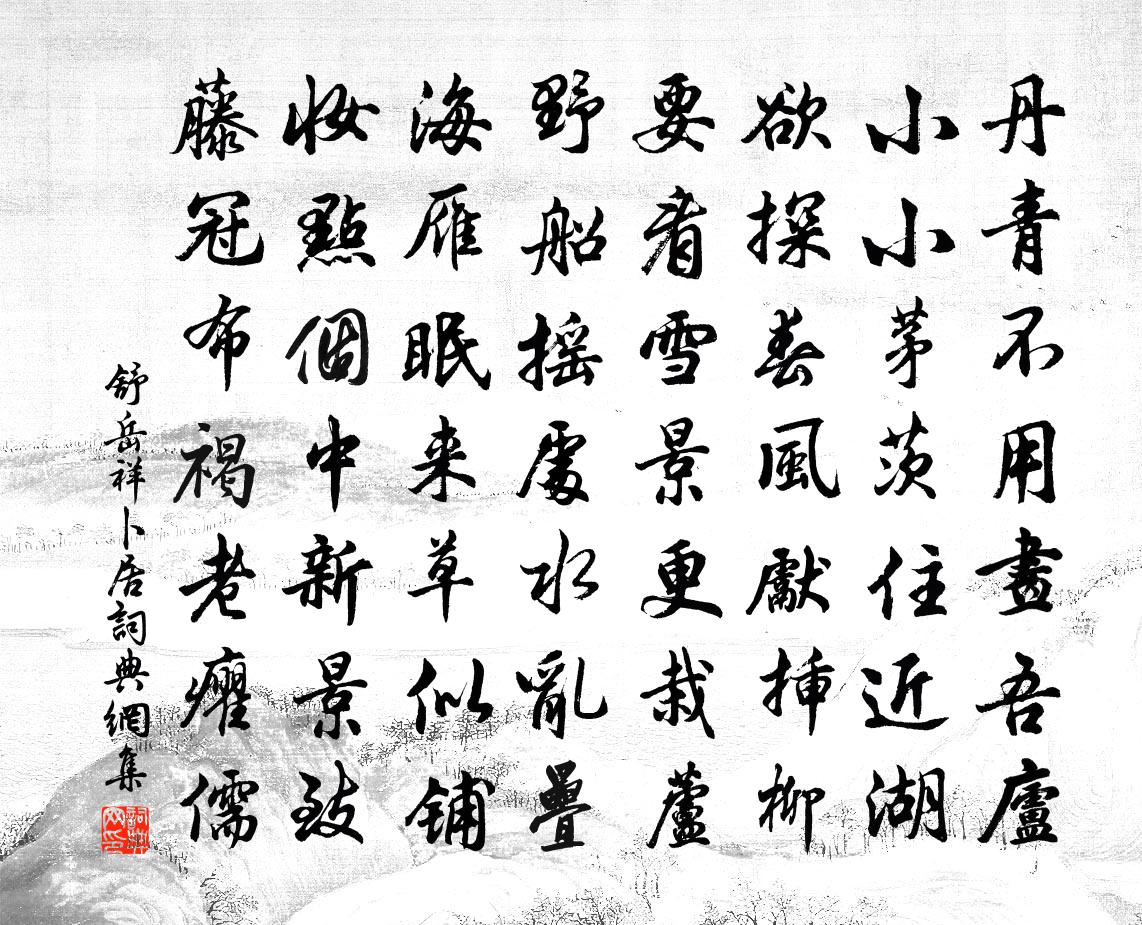 丹青不用畫吾廬
小小茅茨住近湖
欲探春風獻插柳
要看雪景更栽蘆
野船摇處水亂疊
海雁眠来草似鋪
妝點個中新景致
藤冠布褐老癯儒
舒岳祥卜居詞典網集